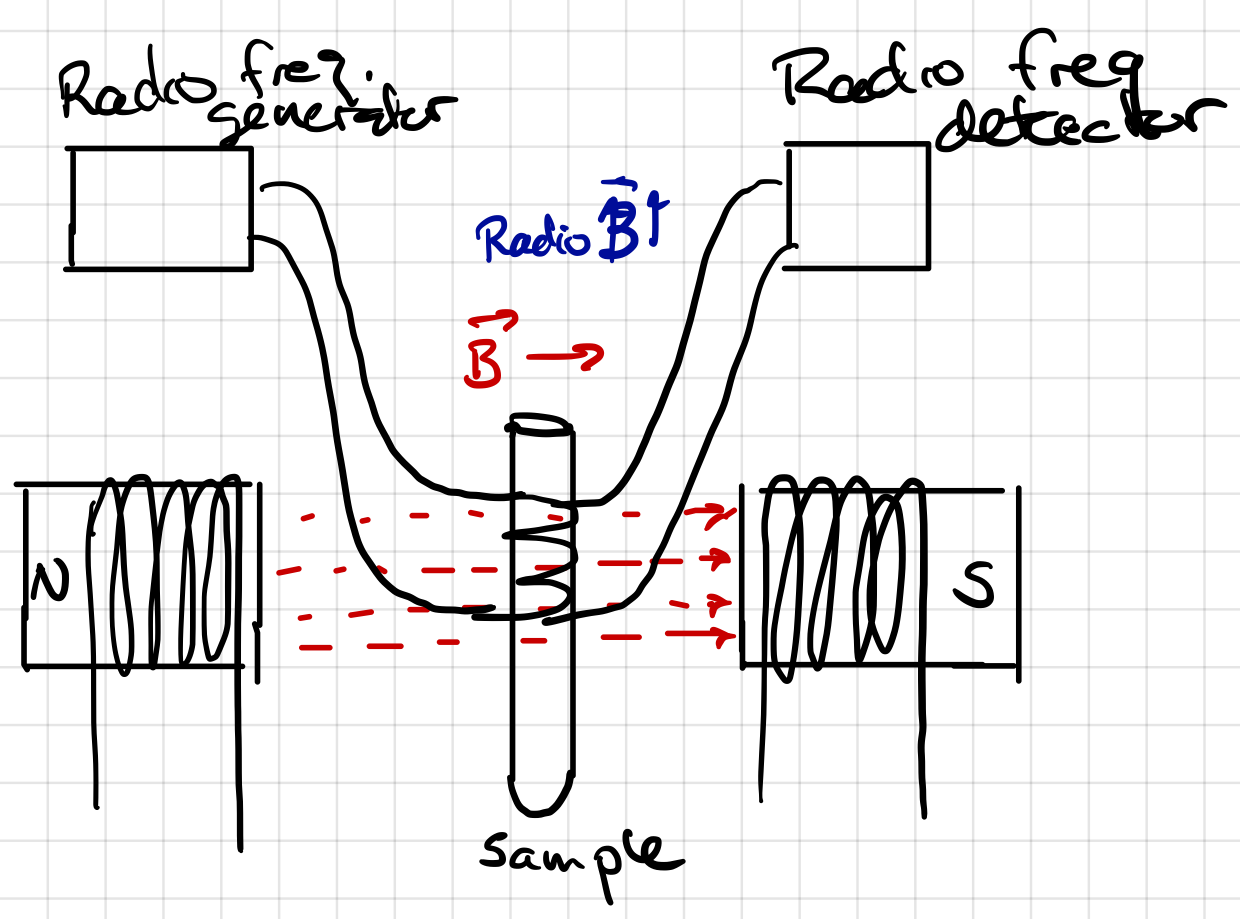 Radio freq.
generator
Radio freq
detector
Radio B
B
N
S
sample